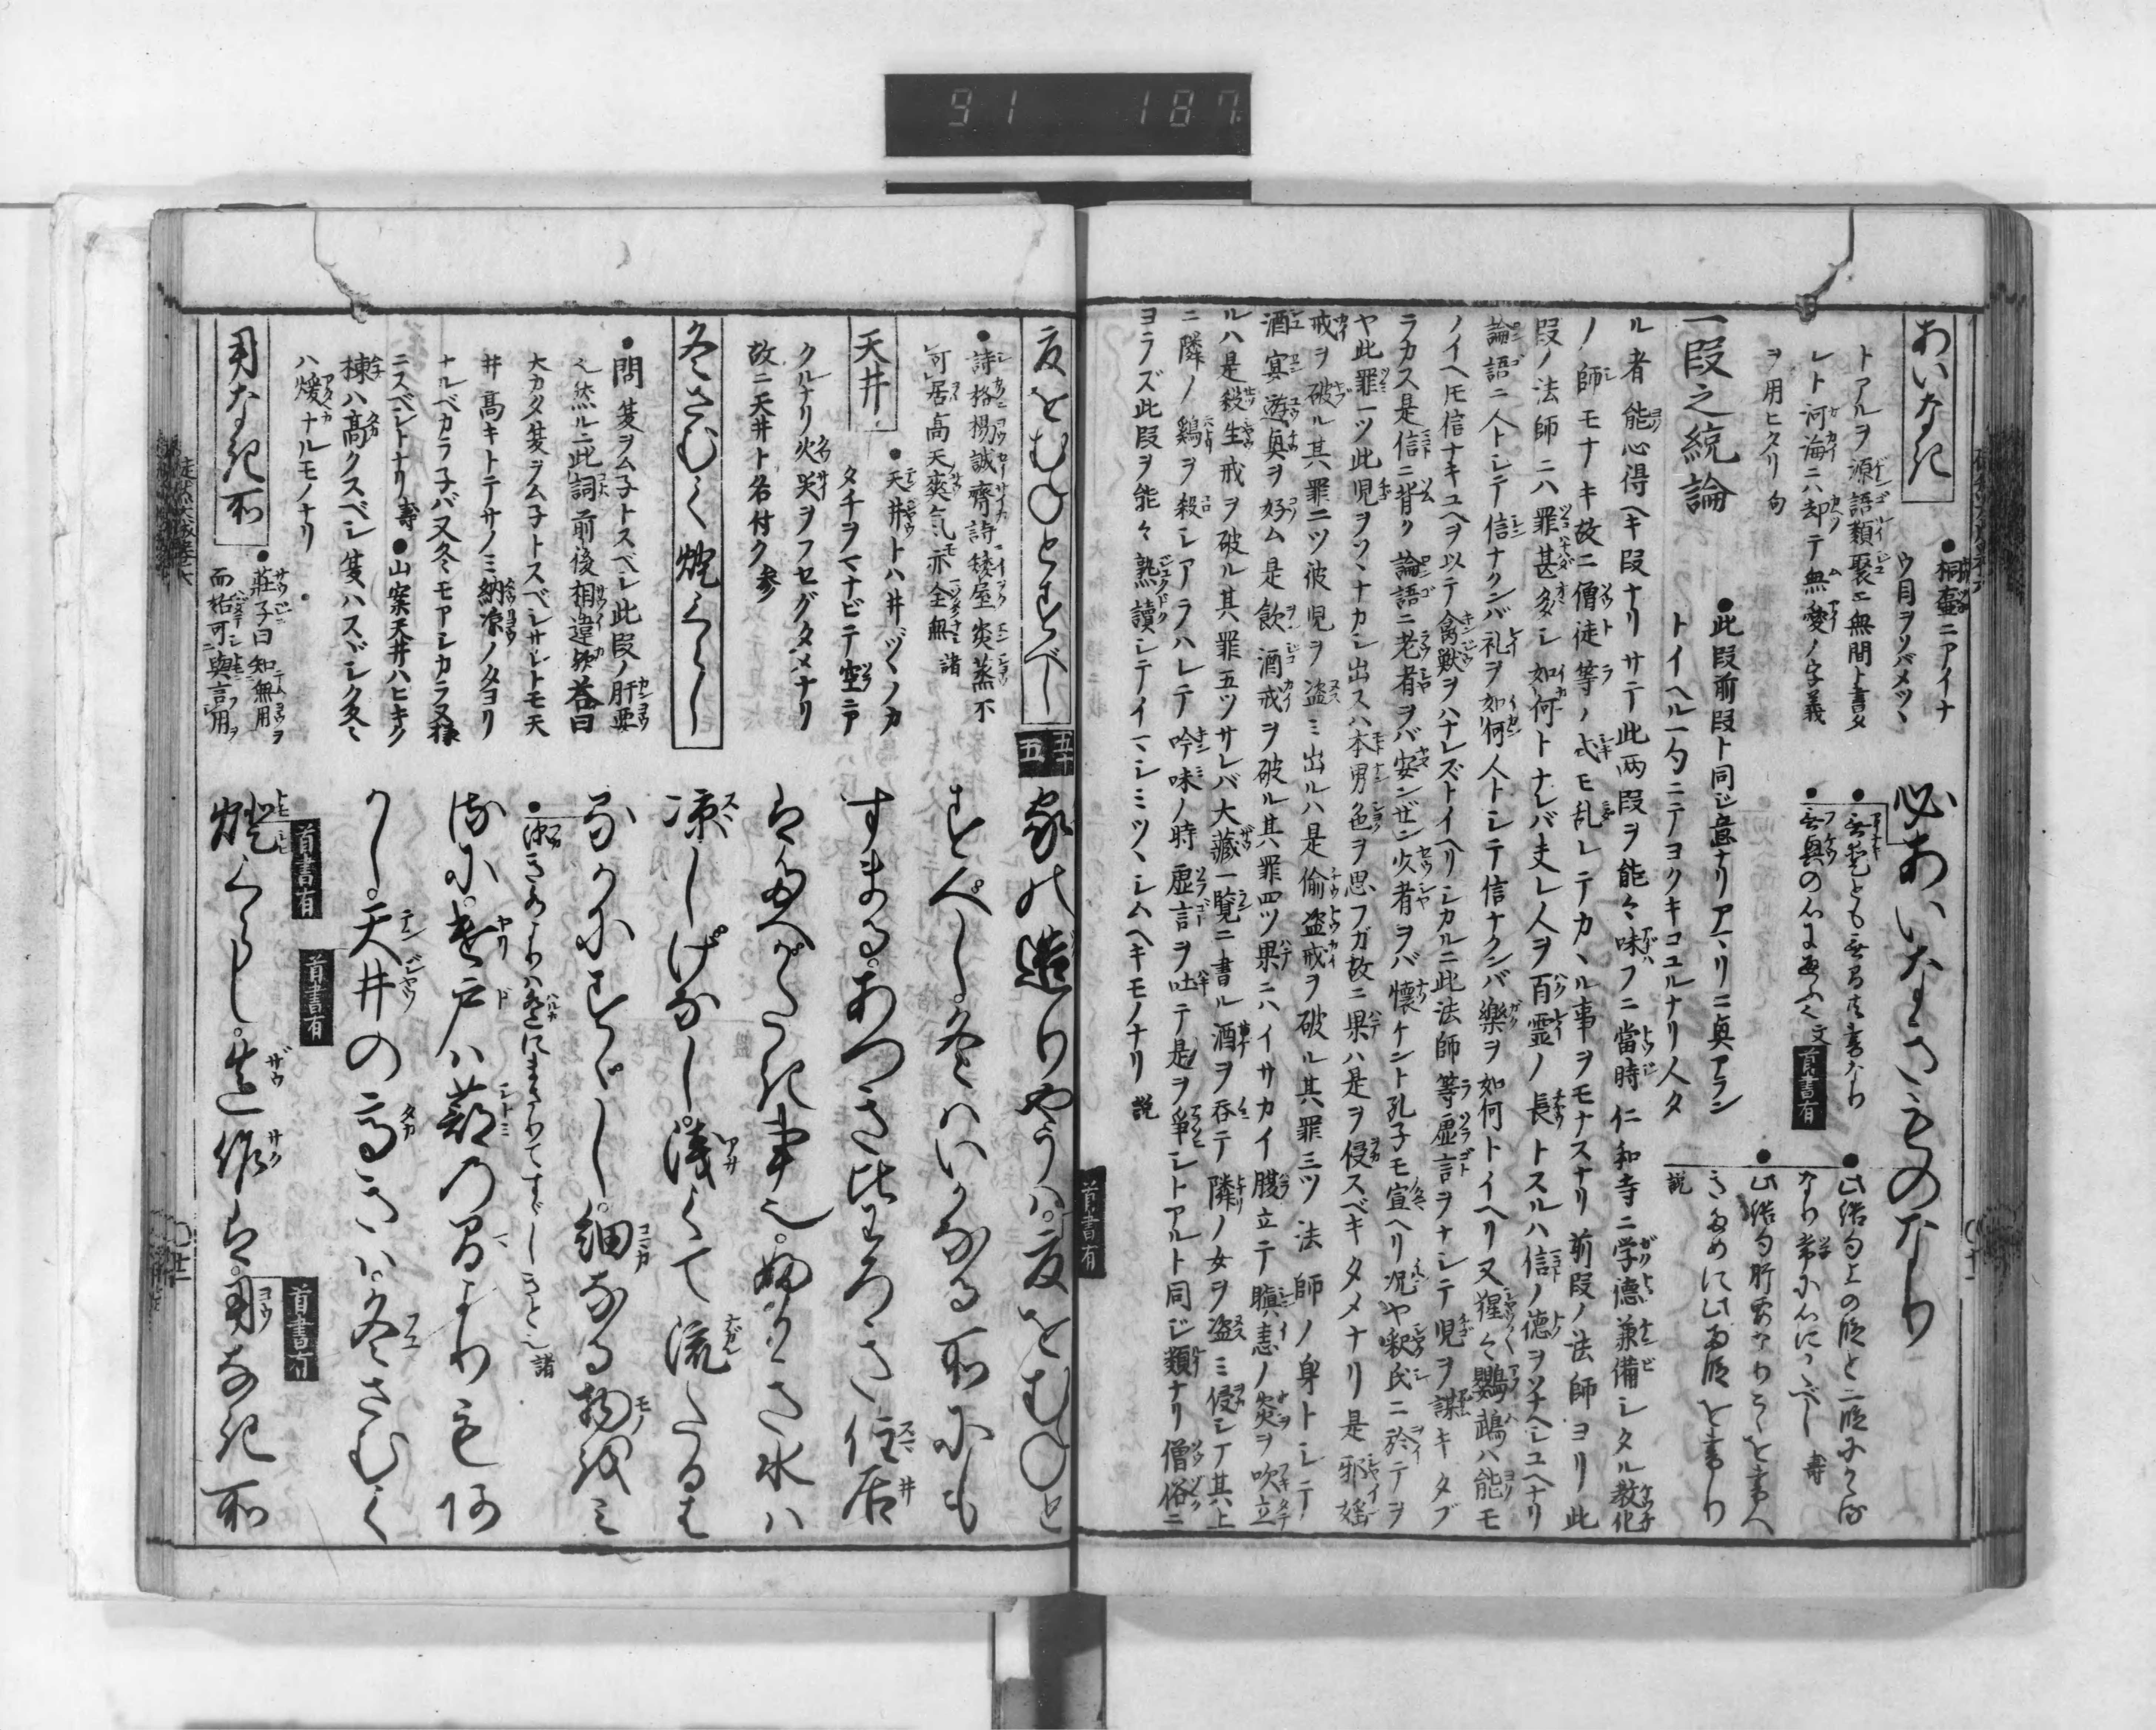 あいなき
●桐壷ニアイナ
ウ目ヲソバメツヽ
トアルヲ源語類聚ニ無間ト書タ
レト河海ニハ却テ無愛ノ字義
ヲ用ヒタリ句
必あいなきものなり
●無愛とも無間共書なり
●無興の心にかよふ文
首書有
なり常に心にかくべし 寿
説
一段之統論
●此段前段ト同ジ意ナリアマリニ興アラン
トイヘル一句ニテヨクキコユルナリ人タ
ル者能心得ヘキ段ナリサテ此両段ヲ能々味フニ當時仁和寺ニ学德兼備シタル教化
ノ師モナキ故ニ僧徒等ノ式モ乱レテカヽル事ヲモナスナリ前段ノ法師ヨリ此
段ノ法師ニハ罪甚多シ如何トナレバ夫レ人ヲ百霊ノ長トスルハ信ノ徳ヲソナヘシユヘナリ
論語ニ人トシテ信ナクンバ礼ヲ如何人トシテ信ナクンバ樂ヲ如何トイヘリ又猩々鸚鵡ハ能モ
ノイヘ𪜈信ナキユヘヲ以テ禽獣ヲハナレズトイヘリシカルニ此法師等虚言ヲナシテ児ヲ謀キタブ
ラカス是信ニ背ク論語ニ老者ヲバ安ンゼン少者ヲバ懐ケント孔子モ宣ヘリ况ヤ釈氏ニ於テヲ
ヤ此罪一ツ此児ヲソヽナカシ出スハ本男色ヲ思フガ故ニ果ハ是ヲ侵スベキタメナリ是邪婬
戒ヲ破ル其罪二ツ彼児ヲ盗ミ出ルハ是偷盗戒ヲ破ル其罪三ツ法師ノ身トシテ
酒宴遊興ヲ好ム是飲酒戒ヲ破ル其罪四ツ果ニハイサカイ腹立テ瞋恚ノ炎ヲ吹立
ルハ是殺生戒ヲ破ル其罪五ツサレバ大藏一覧ニ書ル酒ヲ呑テ隣ノ女ヲ盗ミ侵シテ其上
ニ隣ノ鶏ヲ殺シアラハレテ吟味ノ時虚言ヲ吐テ是ヲ爭シトアルト同ジ類ナリ僧俗ニ
ヨラズ此段ヲ能々熟讀シテイマシミツヽシムヘキモノナリ 説
夏をむねとすべし
●詩格楊誠齋詩矮屋炎蒸不
可居高天爽気亦全無 諸
天井
●天井トハ井ゲタノカ
タチヲマナビテ空ニア
クルナリ火災ヲフセグタメナリ
故ニ天井ト名付ク参
冬さむく燈くらし
●問夏ヲムネトスベシ此段ノ肝要
也然ルニ此詞前後相違歟荅曰
大カタ夏ヲムネトスベシサレトモ天
井高キトテサノミ納凉ノタヨリ
ナルベカラネバ又冬モアシカラヌ様
ニスベシトナリ寿●山案天井ハヒキク
棟ハ高クスベシ夏ハスヾシク冬ミ
ハ煖ナルモノナリ
用なき所
●莊子曰知無用
而始可與言用
五十五
首書有
家の造りやうは。夏をむねと
すべし。冬はいかなる所にも
すまる。あつき比わろき住居
はたへがたき事也。ふかき水ハ
凉しげなし。浅くて流たるは
るかにすゞし。細なる物をミ
●深きよりハ遙にまさりてすゞしきと也 諸
るに。遣戸ハ蔀の間よりもあ
かし。天井の高きハ。冬さむく
首書有
首書有
燈くらし。造作は。用なき所
首書有